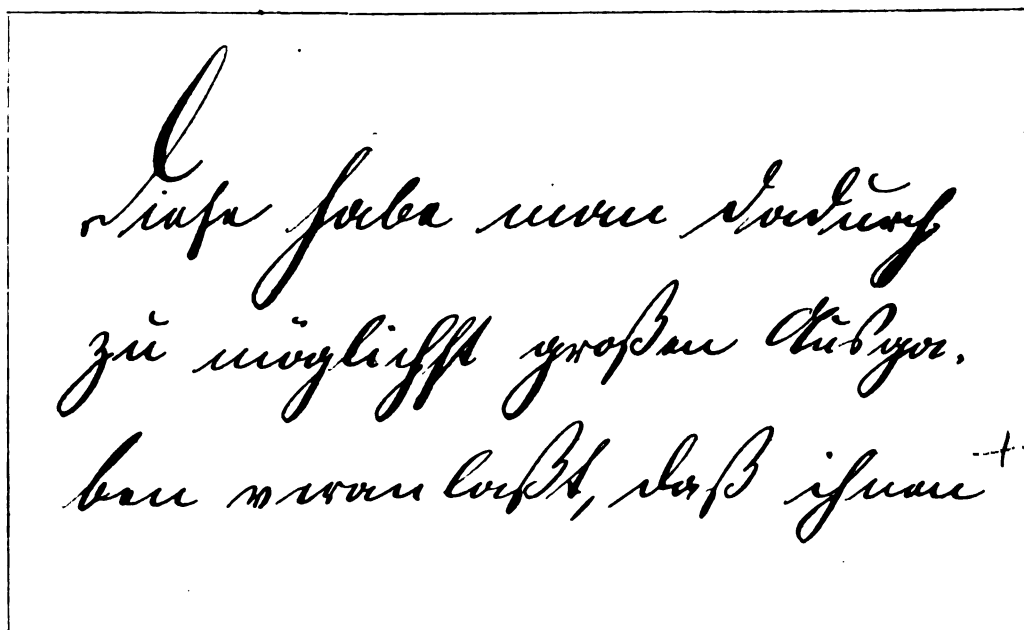 Diese habe man dadurch
zu möglichst großen Ausga-
ben veranlaßt, daß ihnen